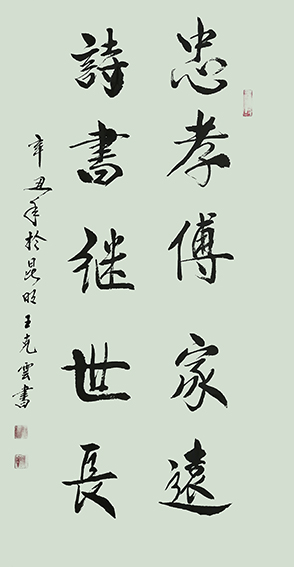 忠孝傳家遠
詩書继世長
辛丑年於昆明王克雲書